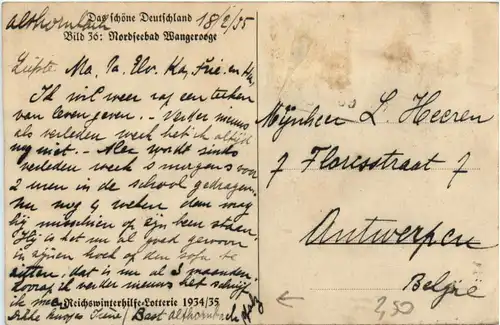 althornbach
Das schöne Deutschland 18/2/35
Bild 36: Nordseebad Wangerooge
Liefste Ma, Pa, Elv. Ka, Frie. en
Ik wil weer rap een teken
van leven geven. Verder nieuws
als verleden week heb ik altijd
nog niet. Alex wordt sinds
verleden week 's morgens voor
2 uren in de school gedragen.
nu nog 4 weken dan mag
hij misschien op zijn been staan.
Hij is het nu al goed gewoon
in zijnen hoek of den sofa te
zitten, dat is nu al 3 maanden.
ik verder nieuws heb schrijf
ik
Reichswinterhilfe-Lotterie 1934/35
Irène / Bast althornbach
Mijnheer L. Heeren
7 Florisstraat 7
Antwerpen
België
← 2,50